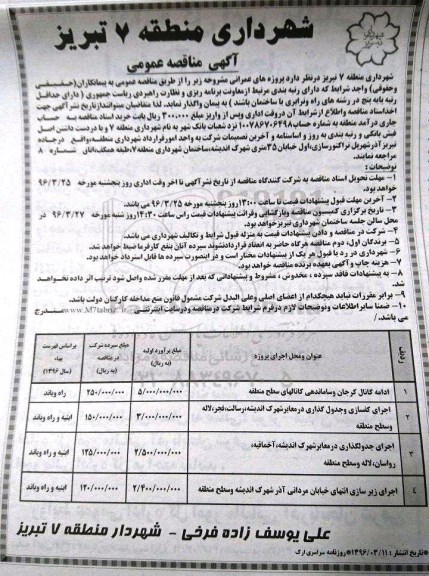 شهرداری منطقه ۷ تبریز
آگهی مناقصه عمومی
شهرداری منطقه ۷ تبریز درنظر دارد پروژه های عمرانی مشروحه زیر را از طریق مناقصه عمومی به پیمانکاران(حقیقی
وحقوقی) واجد شرایط که دارای رتبه بندی مرتبط ازمعاونت برنامه ریزی و نظارت راهبردی ریاست جمهوری ( دارای حداقل
رتبه پایه پنج در رشته های راه وترابری یا ساختمان باشند ) به پیمان واگذار نماید. لذا متقاضیان میتوانند ازتاریخ نشر آگهی جهت
اخذ اسناد مناقصه واطلاع ازشرایط آن دروقت اداری وپس از واریز مبلغ ۳۰۰,۰۰۰ ریال بابت خرید اسناد مناقصه به حساب
جاری درآمد منطقه به شماره حساب ۱۰۰۷۸۶۷۰۶۴۹۸ نزد شعبات بانک شهر به نام شهرداری منطقه ۷ و با دردست داشتن اصل
فیش بانکی و رتبه بندی به روز و اساسنامه و آخرین تصمیمات شرکت به واحد امورقرارداد شهرداری منطقه،واقع درجاده
تبریز آذرشهرپل تراکتورسازی،اول خیابان ۳۵متری شهرک اندیشه،ساختمان شهرداری منطقه۷،طبقه همکف،اتاق شماره ۸
مراجعه نمایند.
توضیحات :
۱- مهلت تحویل اسناد مناقصه به شرکت کنندگان مناقصه از تاریخ نشر آگهی تا آخر وقت اداری روز پنجشنبه مورخه ۹۶/۳/۲۵
خواهد بود.
۲- آخرین مهلت قبول پیشنهادات قیمت تا ساعت ۱۳:۰۰ روز پنجشنبه مورخه ۹۶/۳/۲۵ می باشد.
۳- تاریخ برگزاری کمیسیون مناقصه وبازگشایی وقرائت پیشنهادات قیمت راس ساعت ۱۴:۳۰ روز شنبه مورخه ۹۶/۳/۲۷ در
محل سالن جلسه ساختمان شهرداری تبریز خواهد بود.
۴- شرکت در مناقصه و دادن پیشنهادات قیمت به منزله قبول شرایط و تکالیف شهرداری می باشد.
۵- برندگان اول، دوم مناقصه هرگاه حاضر به انعقاد قراردادنشوند سپرده آنان بنفع کارفرما ضبط خواهد شد.
۶- شهرداری در رد یا قبول هر یک از پیشنهادات مختار است و در اینصورت سپرده ها قابل استرداد خواهد بود.
۷- هزینه چاپ و آگهی بعهده برنده مناقصه خواهد بود.
۸- به پیشنهادات فاقد سپرده ، مخدوش ، مشروط و پیشنهاداتی که بعد از مهلت مقرر شده واصل شود ترتیب اثر داده نخواهد
شد.
۹- برابر مقررات نباید هیچکدام از اعضای اصلی وعلی البدل شرکت مشمول قانون منع مداخله کارکنان دولت باشد.
۱۰- ضمنا سایر اطلاعات وتوضیحات لازم درفرم شرایط شرکت در مناقصه ودرسایت اینترنتی www.M7tabriz مندرج
می باشد.
ردیف
عنوان ومحل اجرای پروژه
مبلغ برآورد اولیه
(به ریال)
مبلغ سپرده شرکت
در مناقصه
(به ریال)
براساس فهرست
بهاء
(سال ۱۳۹۶)
۱ ادامه کانال کرجان وساماندهی کانالهای سطح منطقه ۵/۰۰۰/۰۰۰/۰۰۰ ۲۵۰/۰۰۰/۰۰۰ راه وباند
۲ اجرای کفسازی وجدول گذاری درمعابرشهرک اندیشه،رسالت،فجر،لاله
وسطح منطقه ۳/۰۰۰/۰۰۰/۰۰۰ ۱۵۰/۰۰۰/۰۰۰ ابنیه و راه وباند
۳ اجرای جدولگذاری درمعابرشهرک اندیشه،آخماقیه،
رواسان،لاله وسطح منطقه ۲/۵۰۰/۰۰۰/۰۰۰ ۱۲۵/۰۰۰/۰۰۰ ابنیه و راه وباند
۴ اجرای زیر سازی انتهای خیابان مردانی آذر شهرک اندیشه وسطح منطقه ۲/۴۰۰/۰۰۰/۰۰۰ ۱۲۰/۰۰۰/۰۰۰ ابنیه و راه وباند
علی یوسف زاده فرخی - شهردار منطقه ۷ تبریز
*تاریخ انتشار : ۱۳۹۶/۰۳/۱۱*روزنامه سراسری ارک